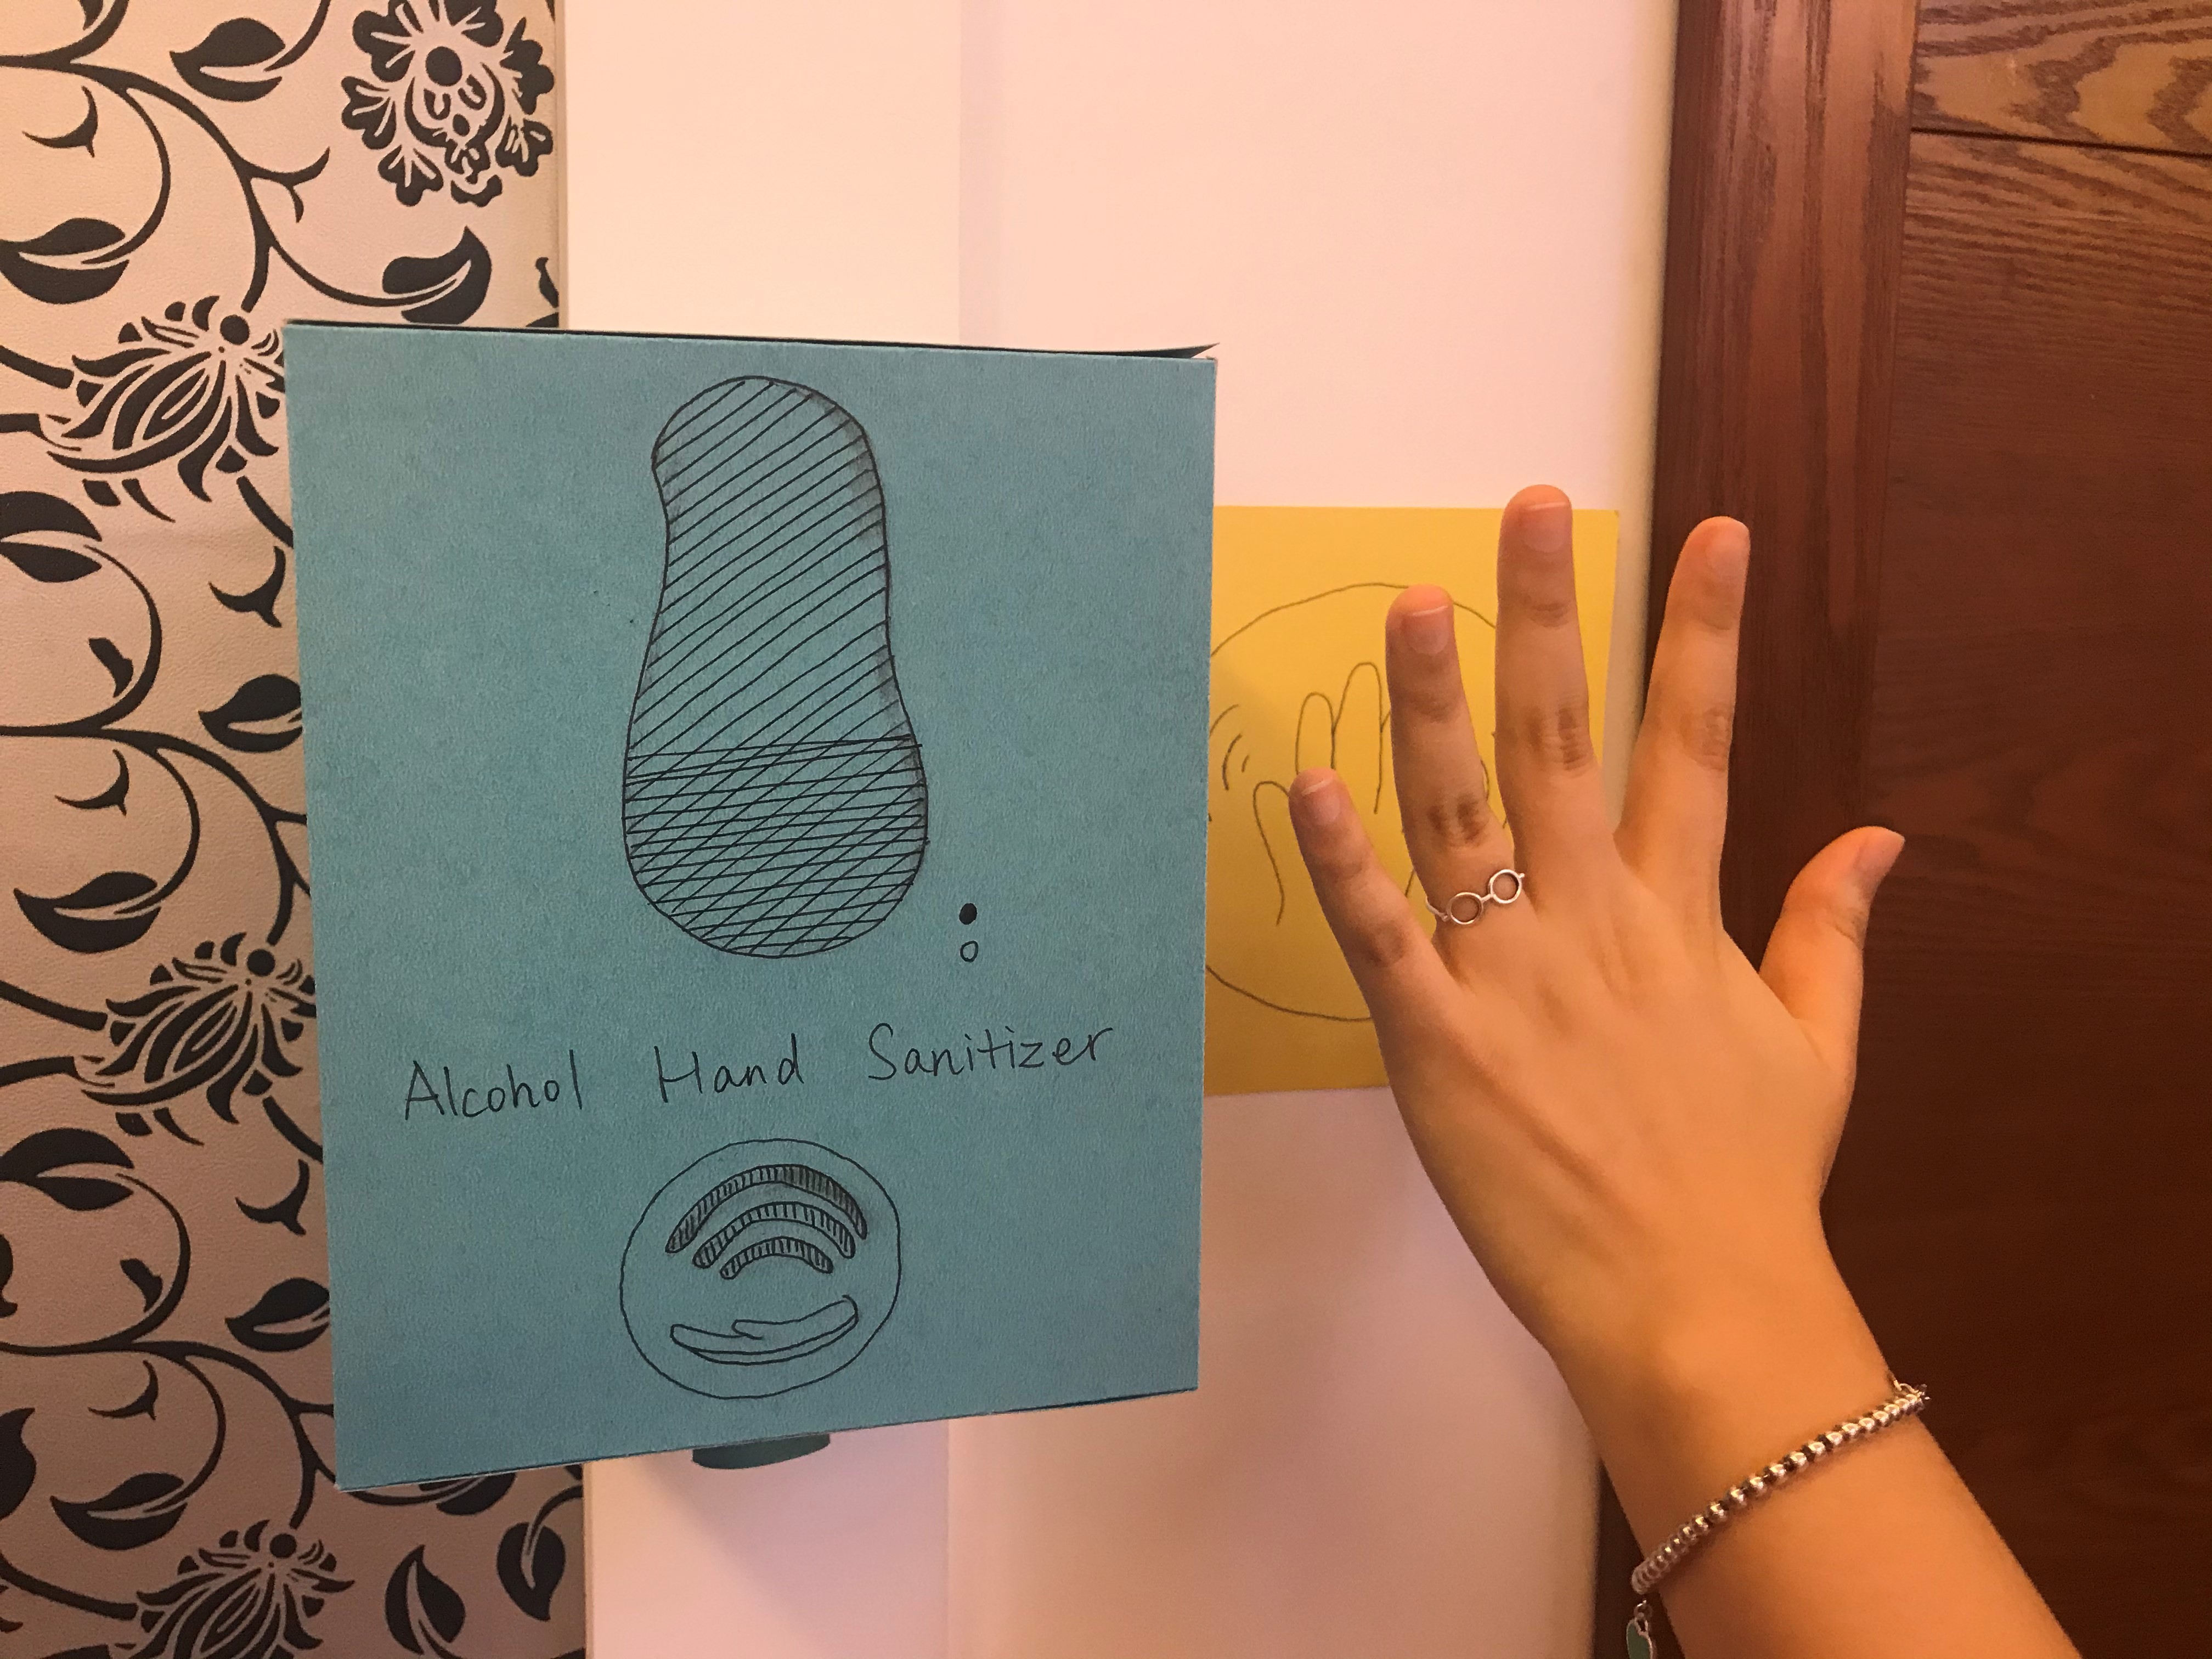 Alcohol Hand Sanitizer